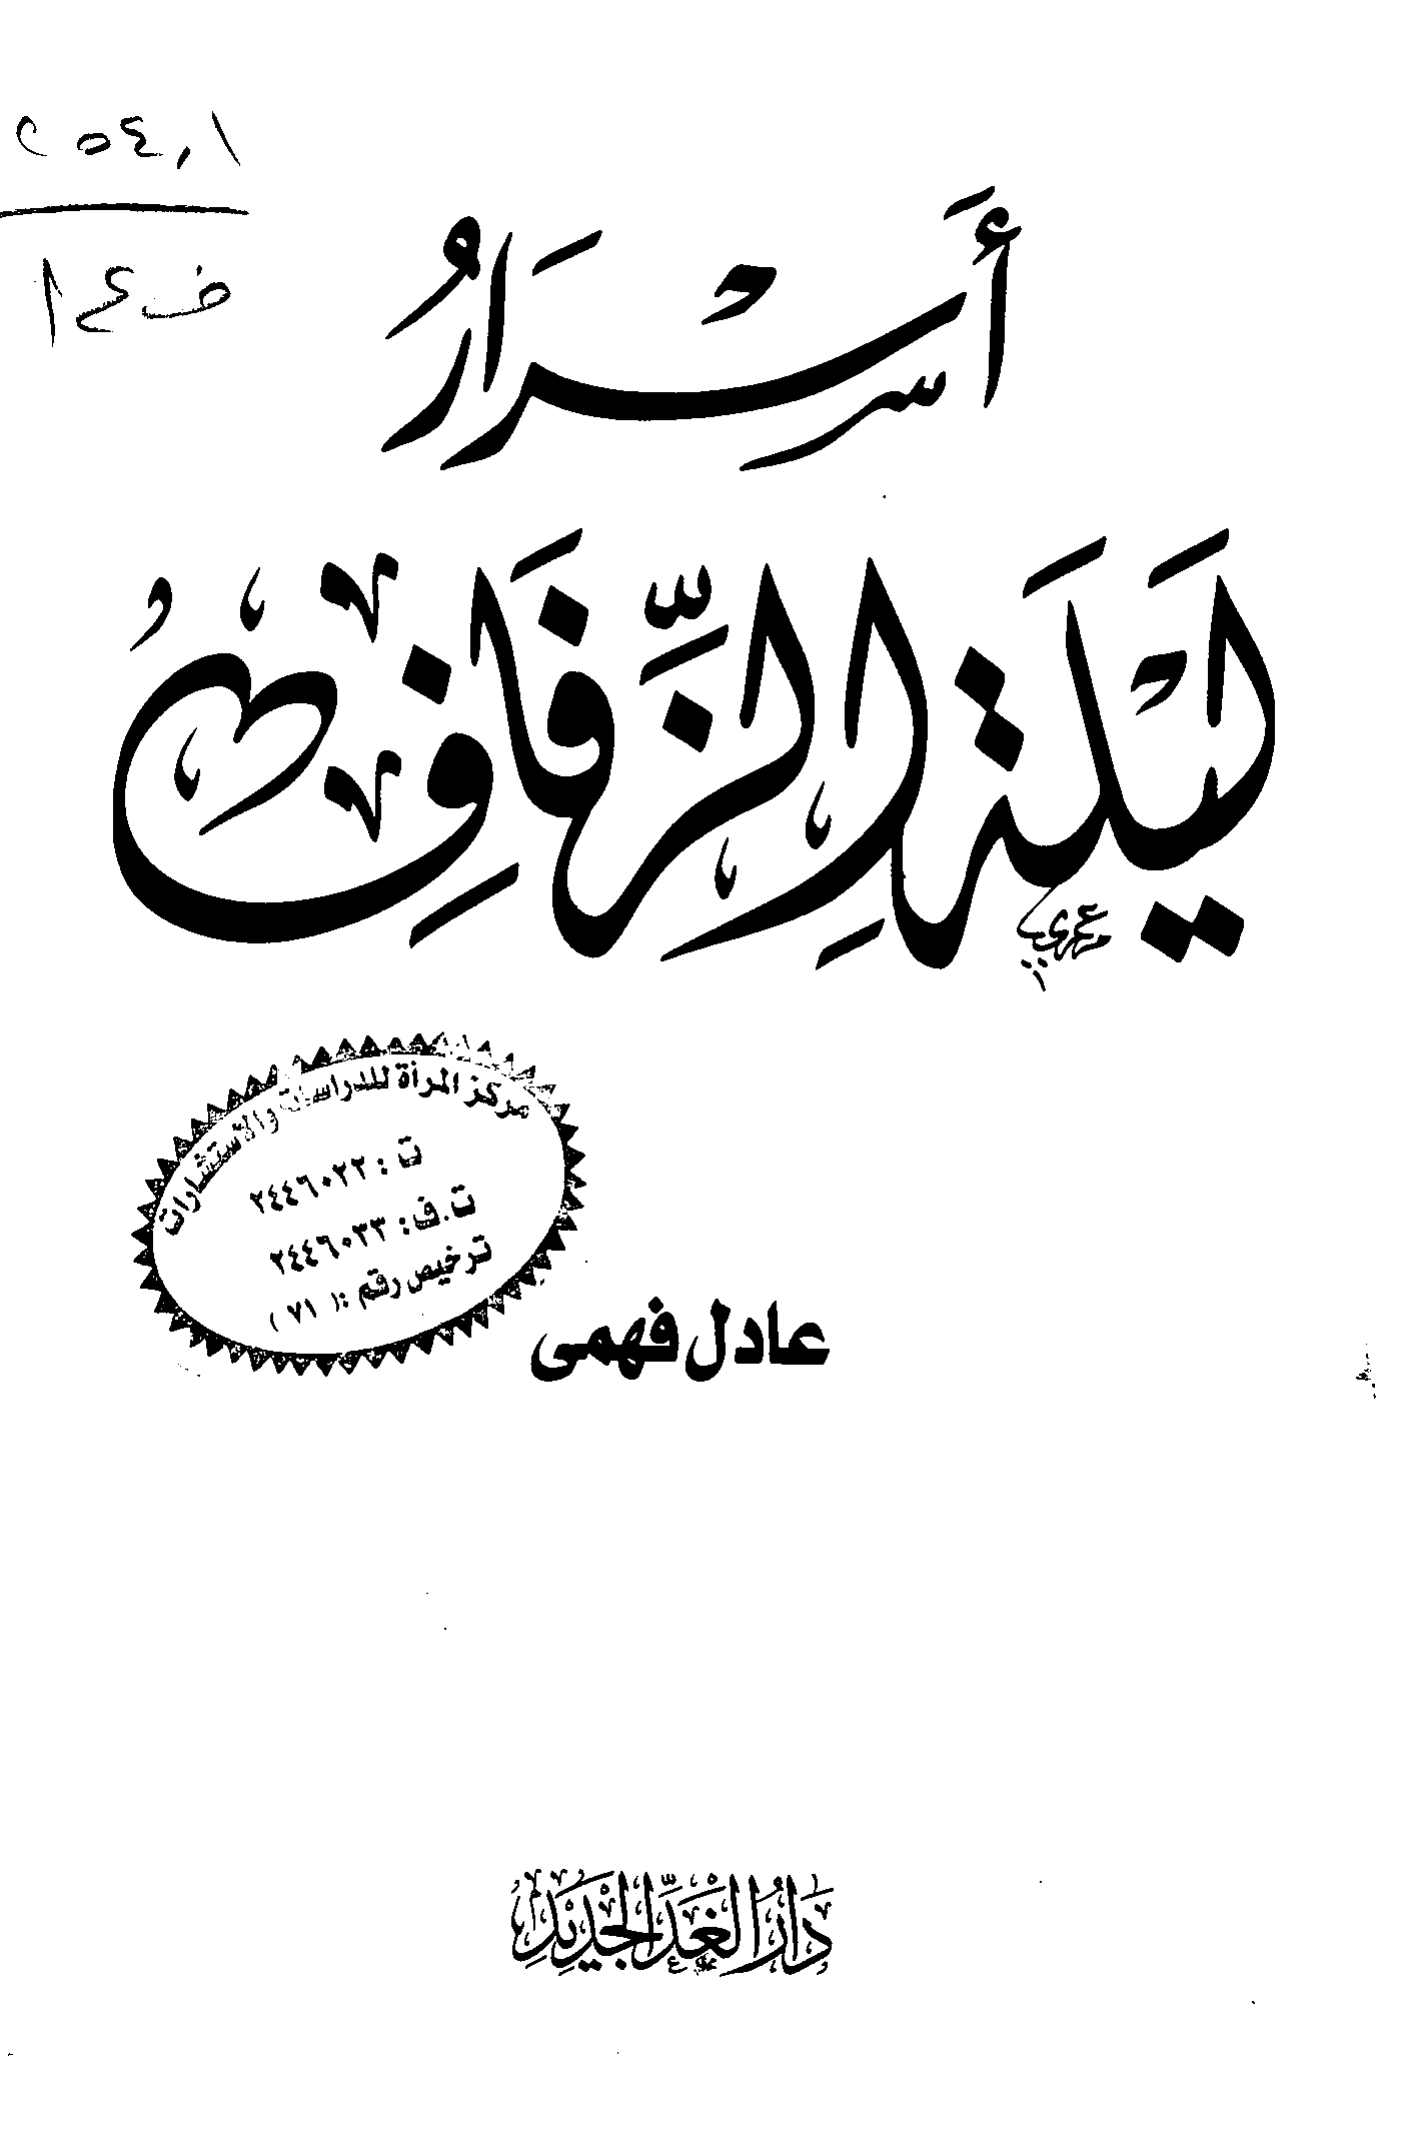 ٢٥٤,١
ف ع أ
أَسْرَارُ
لَيْلَةِ الزَّفَافِ
مركز المرأة للدراسات والاستشارات
ت : ٢٤٤٦٠٢٢
ت.ف: ٢٤٤٦٠٣٣
ترخيص رقم :( ٧١ )
عادل فهمى
دَارُ الغَدِ الجَدِيدِ